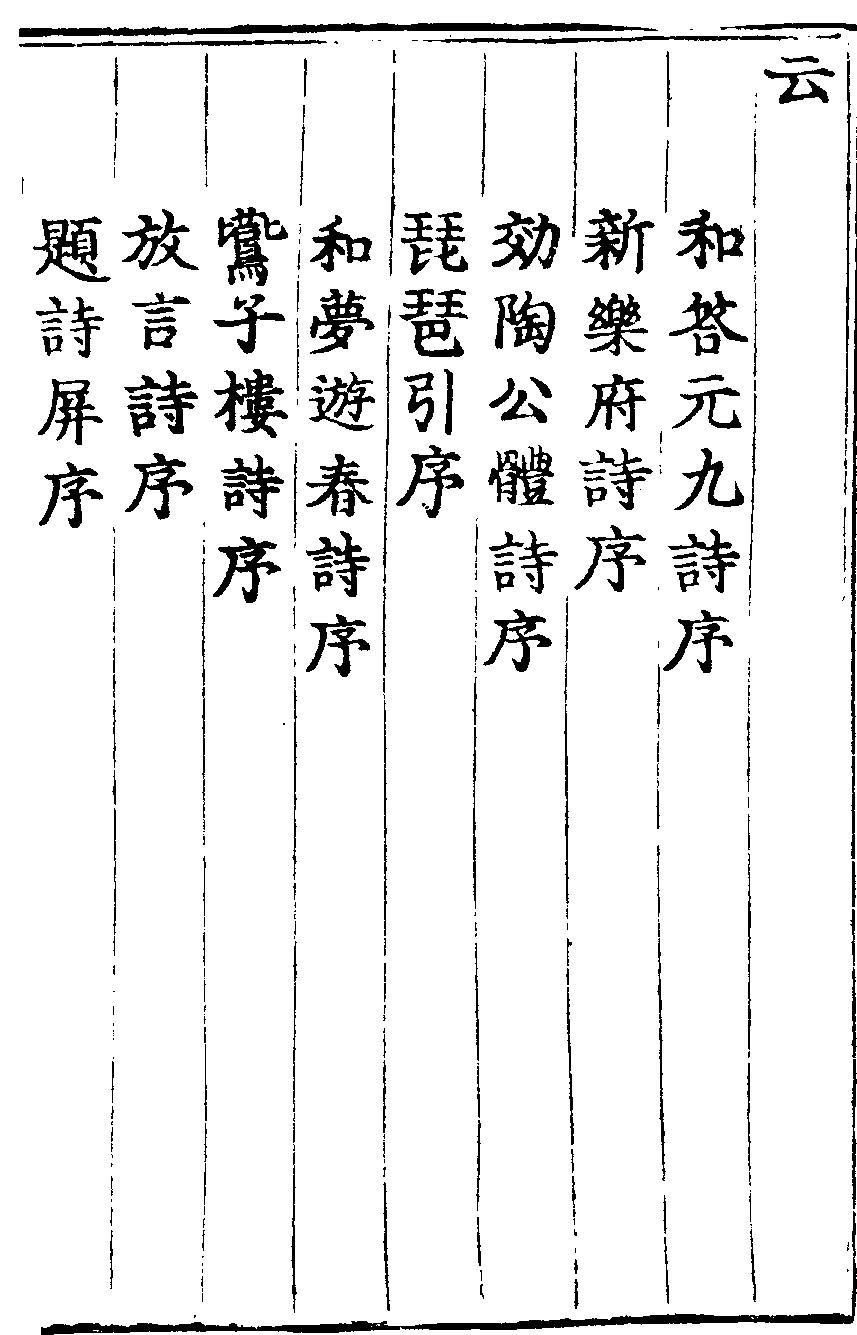 云
和荅元九詩序
新樂府詩序
効陶公體詩序
琵琶引序
和夢遊春詩序
鷰子樓詩序
放言詩序
題詩屏序